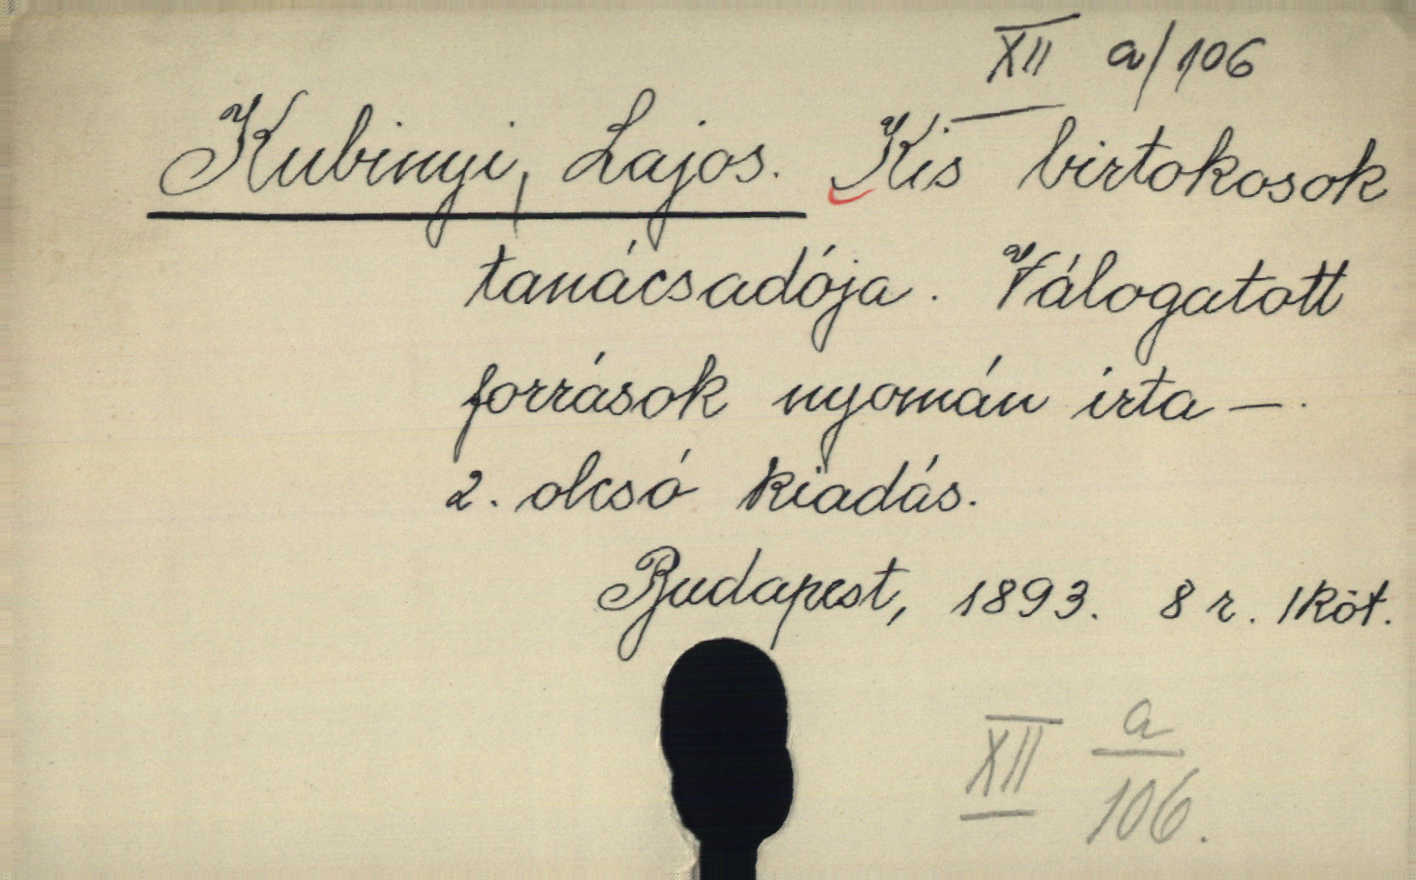 XII a/106
Kubinyi, Lajos. Kis birtokosok
tanácsadója. Válogatott
források nyomán irta —.
2. olcsó kiadás.
Budapest, 1893. 8 r. 1 köt.
XII a/106.